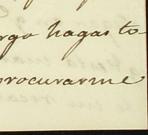 rgo hagas to
procurarme